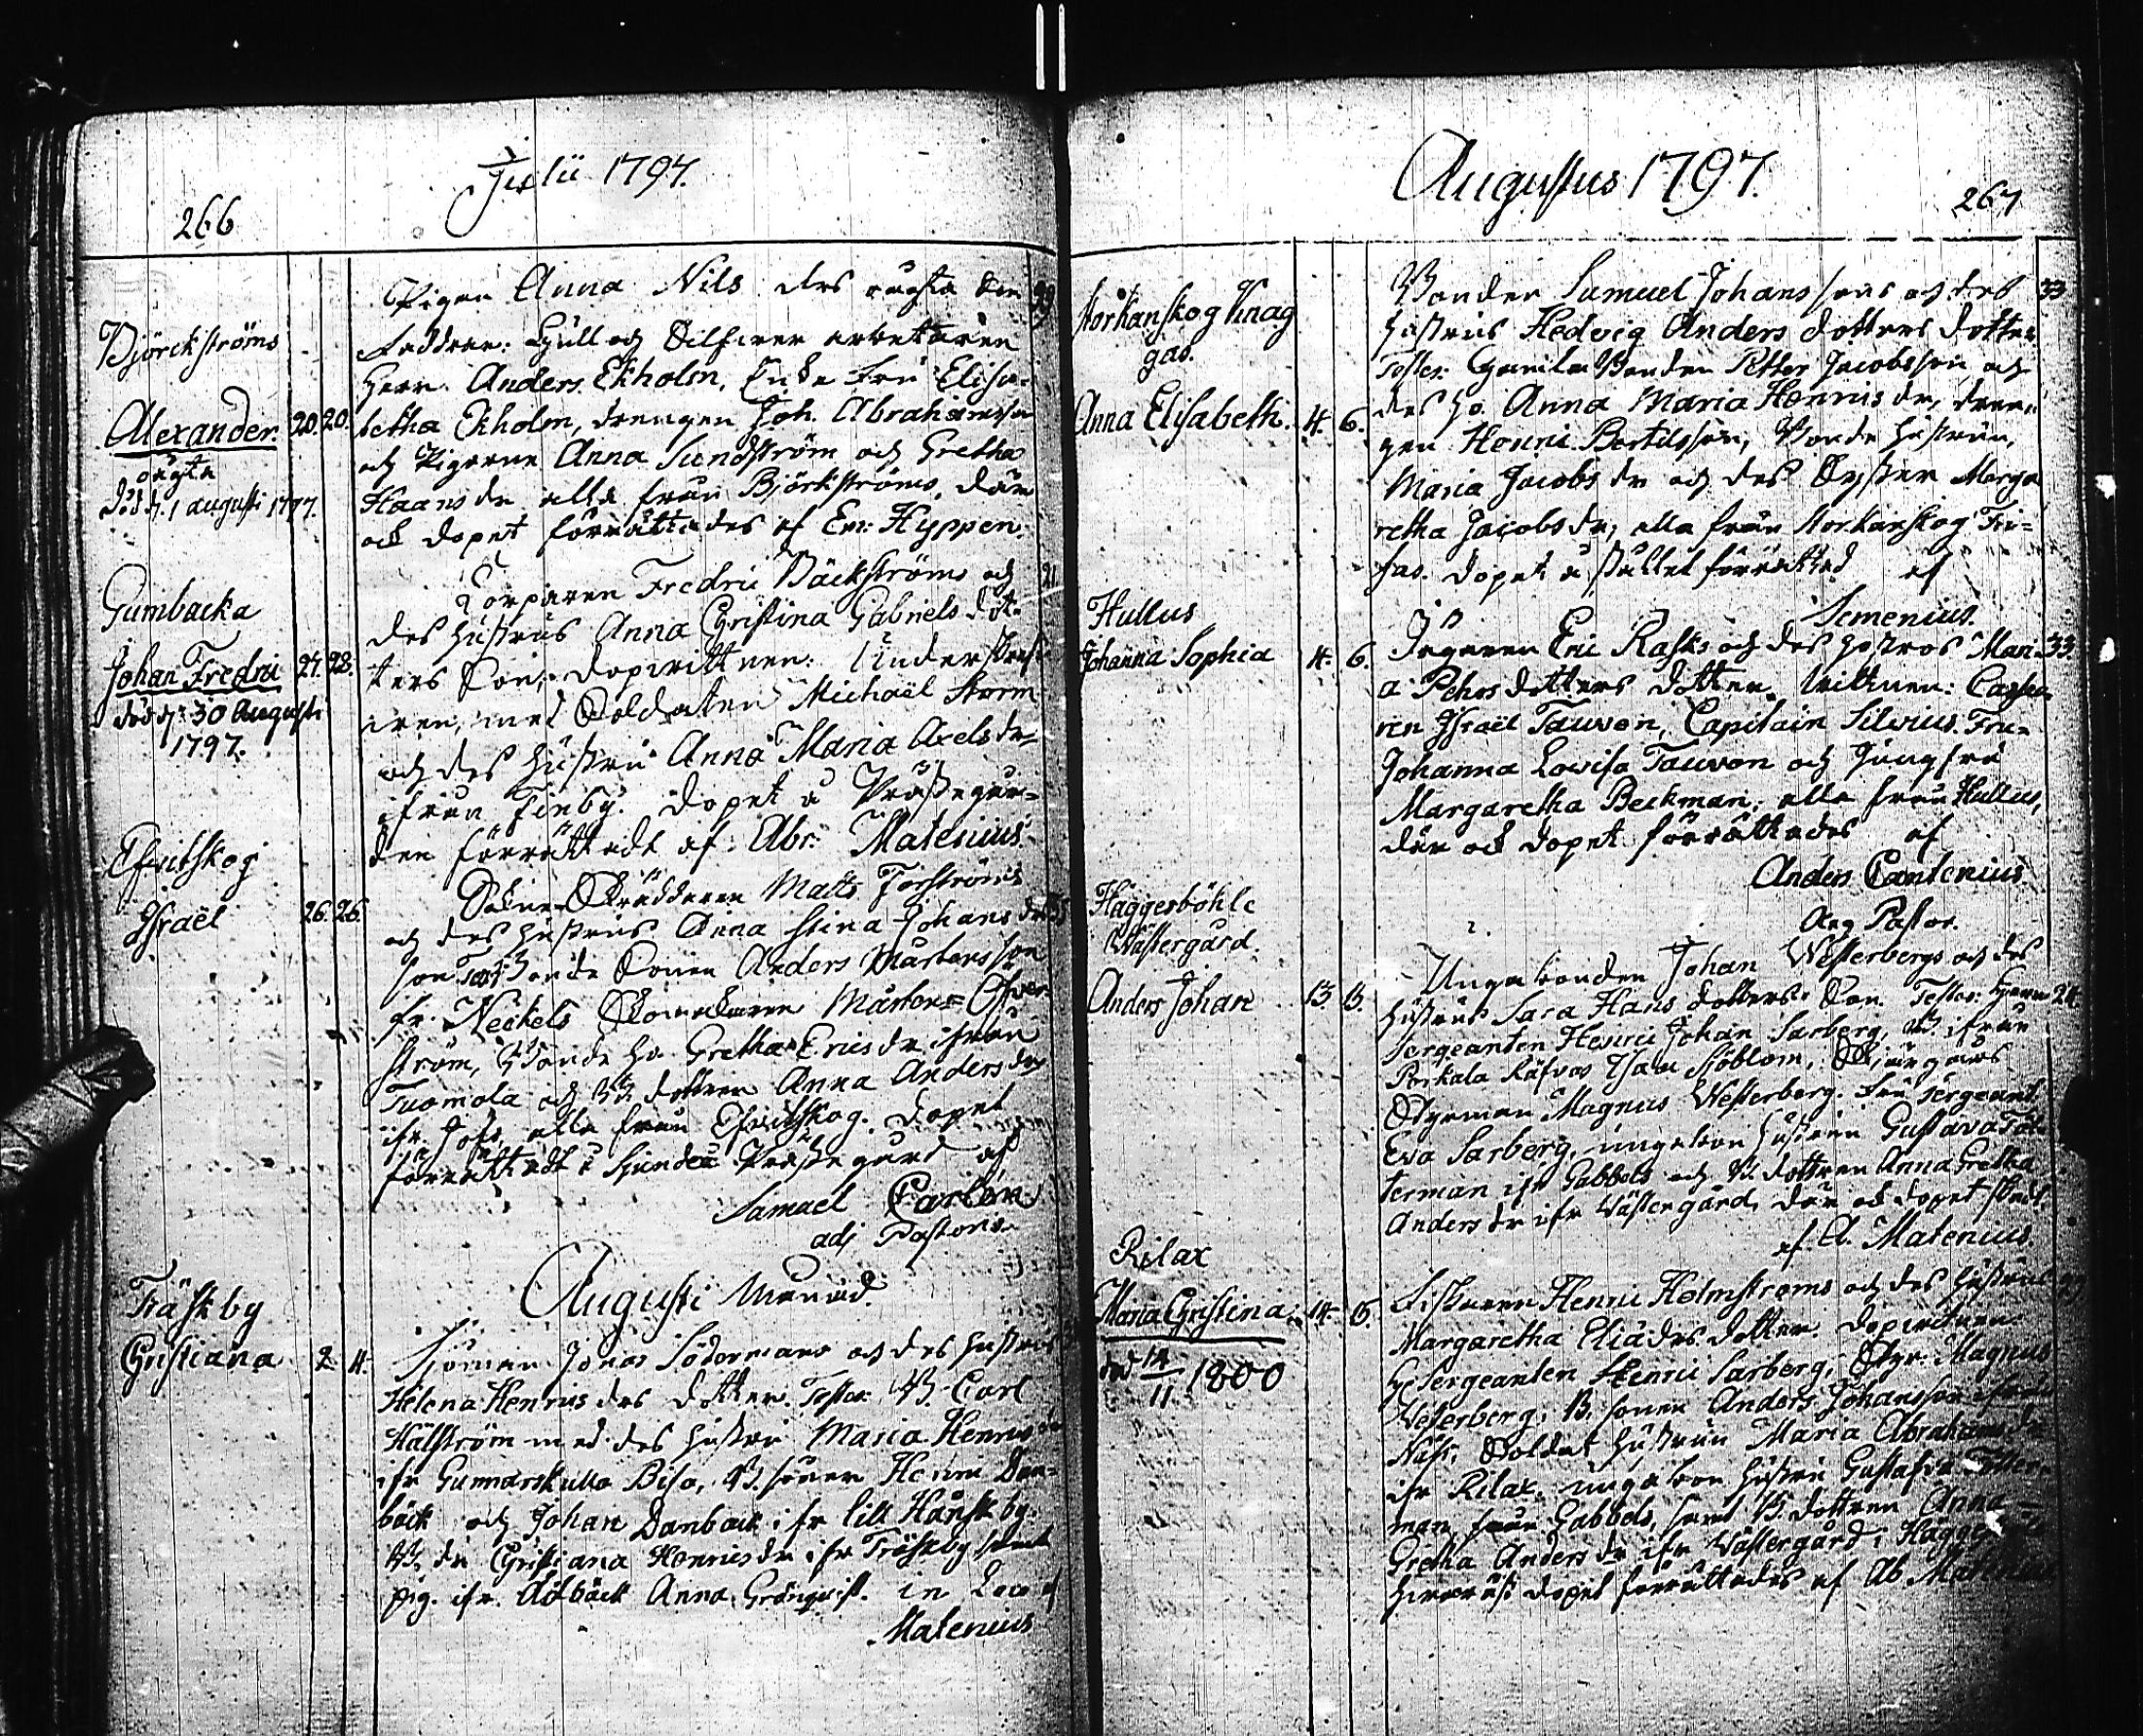 266
Julii 1797.
Björckströms
Alexander. 20. 20.
oägta
död d. 1 augusti 1797.
Pigan Anna Nils drs oägta Son
Faddrar: Gull och Silfwer arbetaren
Herr Anders Ekholm, Enke Fru Elisa-
betha Ekholm, drengen Joh. Abrahamsson
och Pigorne Anna Sundström och Gretha
Haans dr alla från Björkströms, där
ock dopet förrättades af Em: Hyppen.
Gumbacka
Johan Fredric 27. 28.
död d. 30 Augusti
1797.
21.
Torparen Fredric Bäckströms och
des hustrus Anna Christina Gabriels dot-
ters Son; dopvittnen:
med Soldaten Michaël Storm
och des hustru Anna Maria Axels dr
ifrån Finby. Dopet å Prästegår-
den förrättadt af Abr: Matenius.
Efvitskog
Israël 26. 26.
Sokne Skräddaren Matts Forströms
och des hustrus Anna Stina Johans dr
son Test: Bonde Sonen Anders Mårtensson
fr. Neckels Skomakaren Mårten Öfver-
ström, Bonde ho Gretha Erics dr ifrån
Tuomola och B. dottren Anna Anders dr
ifr. Jofs, alla från Efvitskog. Dopet
förrättadt i Sjundeå Prästegård af
Samuel Carlen
adj Pastoris.
Augusti Månad.
Träskby
Christiana 2. 4.
Sjöman Jonas Södermans och des hustrus
Helena Henrics drs dotter. Testes: B. Carl
Hälström med des hustru Maria Henrics dr
ifr Gunnarskulla Bisa, B. sonen Henric Dan-
bäck och Johan Danback ifr lill Hanskby.
B. dr Christiana Henrics dr ifr Träskby samt
pig. ifr. Ådbäck Anna Grönqvist. in Loco af
Matenius
Augustus 1797.
267
Anna Elisabeth. 4. 6.
33
Bonden Samuel Johanssons och des
hustrus Hedvig Anders dotters dotter
Testes: Gamla Bonden Petter Jacobsson och
des ho. Anna Maria Henrics dr, dren-
gen Henric Bertilsson, Bonde hustrun,
Maria Jacobs dr och des Syster Marga
retha Jacobs dr, alla från Korkanskog Fin-
gas. Dopet å stället förrättad af
Semenius.
Hullus
Johanna Sophia 4. 6.
33.
Jegaren Eric Rasks och des hustros Mari
a Pehrs dotters dotter. Vittnen:
Israël Tauvon, Capitain Silvius. Fru
Johanna Lovisa Tauvon och Jungfru
Margaretha Beckman; alla från Hullus,
där ock dopet förrättades af
Anders Cantenius
Aeg Pastor.
Häggesböhle
Wästergård.
Anders Johan 13. 15.
24.
Ungabonden Johan Westerbergs och des
hustrus Sara Hans dotters Son Testes: Herr
Sergeanten Henric Johan Sarberg, B. ifrån
Porkala Räfvas Isaac Sjöblom, Skärgårds
Styrman Magnus Westerberg. Fru Sergeant
Eva Sarberg, ungabon hustrun Gustava Töt-
terman ifr Gabbels och B. dottren Anna Gretha
Anders dr ifr Wästergård, där ock dopet skedt
af A. Matenius.
Rilax
Maria Christina. 14. 15.
död 14/11 1800
Fiskaren Henric Holmströms och des hustrus
Margaretha Eliædrs dotter. Dopvittnen
H. Sergeanten Henric Sarberg, Styr: Magnus
Westerberg, B. sonen Anders Johansson ifrån
Näse, Soldat hustrun Maria Abrahams dr
ifr Rilax, ungabon hustru Gustafva Tötter-
man från Gabbels, samt B. dottren Anna
Gretha Anders dr ifr Wästergård i Häggesböhle
hwaräst dopet förrättades af Ab Matenius